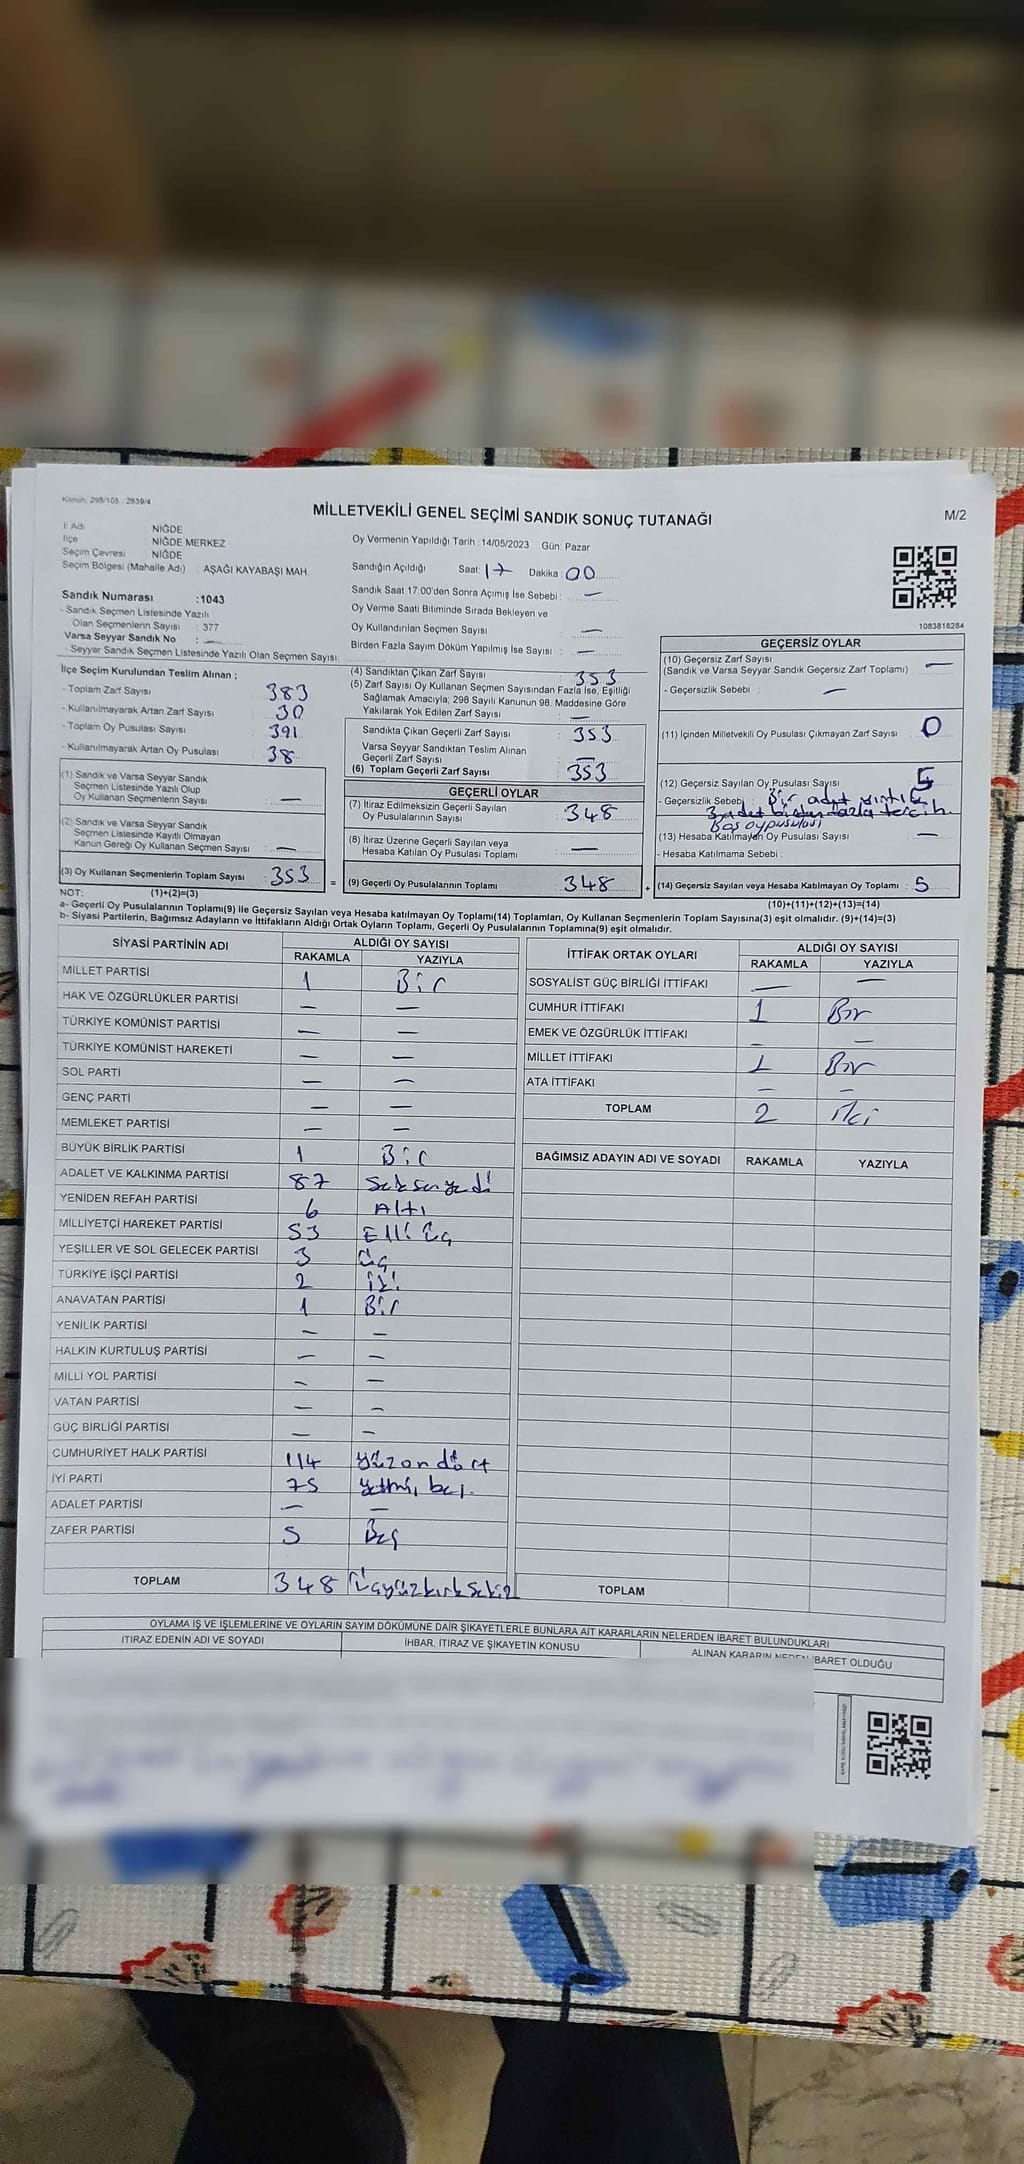 Kanun: 298/105 . 2839/4
MİLLETVEKİLİ GENEL SEÇİMİ SANDIK SONUÇ TUTANAĞI
M/2
İl Adı NİĞDE
İlçe NİĞDE MERKEZ
Seçim Çevresi NİĞDE
Seçim Bölgesi (Mahalle Adı) : AŞAĞI KAYABAŞI MAH.
Sandık Numarası :1043
- Sandık Seçmen Listesinde Yazılı
Olan Seçmenlerin Sayısı : 377
Varsa Seyyar Sandık No : —
- Seyyar Sandık Listesinde Yazılı Olan Seçmen Sayısı:
Oy Vermenin Yapıldığı Tarih :14/05/2023 Gün: Pazar
Sandığın Açıldığı Saat: 17 Dakika : 00
Sandık Saat 17.00'den Sonra Açımış İse Sebebi : —
Oy Verme Saati Bitiminde Sırada Bekleyen ve
Oy Kullandırılan Seçmen Sayısı : —
Birden Fazla Sayım Döküm Yapılmış İse Sayısı : —
1083816284
İlçe Seçim Kurulundan Teslim Alınan ;
- Toplam Zarf Sayısı : 383
- Kullanılmayarak Artan Zarf Sayısı : 30
- Toplam Oy Pusulası Sayısı : 391
- Kullanılmayarak Artan Oy Pusulası : 38
(1) Sandık ve Varsa Seyyar Sandık
Seçmen Listesinde Yazılı Olup
Oy Kullanan Seçmenlerin Sayısı : —
(2) Sandık ve Varsa Seyyar Sandık
Seçmen Listesinde Kayıtlı Olmayan
Kanun Gereği Oy Kullanan Seçmen Sayısı : —
(3) Oy Kullanan Seçmenlerin Toplam Sayısı : 353 =
(4) Sandıktan Çıkan Zarf Sayısı : 353
(5) Zarf Sayısı Oy Kullanan Seçmen Sayısından Fazla İse, Eşitliği
Sağlamak Amacıyla; 298 Sayılı Kanunun 98. Maddesine Göre
Yakılarak Yok Edilen Zarf Sayısı : —
Sandıkta Çıkan Geçerli Zarf Sayısı : 353
Varsa Seyyar Sandıktan Teslim Alınan
Geçerli Zarf Sayısı : —
(6) Toplam Geçerli Zarf Sayısı : 353
GEÇERLİ OYLAR
(7) İtiraz Edilmeksizin Geçerli Sayılan
Oy Pusulalarının Sayısı : 348
(8) İtiraz Üzerine Geçerli Sayılan veya
Hesaba Katılan Oy Pusulası Toplamı : —
(9) Geçerli Oy Pusulalarının Toplamı : 348 +
GEÇERSİZ OYLAR
(10) Geçersiz Zarf Sayısı
(Sandık ve Varsa Seyyar Sandık Geçersiz Zarf Toplamı) : —
- Geçersizlik Sebebi : —
(11) İçinden Milletvekili Oy Pusulası Çıkmayan Zarf Sayısı : 0
(12) Geçersiz Sayılan Oy Pusulası Sayısı : 5
- Geçersizlik Sebebi Bir adet yırtık
3 adet birden fazla tercih.
Boş oy pusulası
(13) Hesaba Katılmayan Oy Pusulası Sayısı : —
- Hesaba Katılmama Sebebi :
(14) Geçersiz Sayılan veya Hesaba Katılmayan Oy Toplamı : 5
NOT: (1)+(2)=(3)
(10)+(11)+(12)+(13)=(14)
a- Geçerli Oy Pusulalarının Toplamı(9) ile Geçersiz Sayılan veya Hesaba katılmayan Oy Toplamı(14) Toplamları, Oy Kullanan Seçmenlerin Toplam Sayısına(3) eşit olmalıdır. (9)+(14)=(3)
b- Siyasi Partilerin, Bağımsız Adayların ve İttifakların Aldığı Ortak Oyların Toplamı, Geçerli Oy Pusulalarının Toplamına(9) eşit olmalıdır.
SİYASİ PARTİNİN ADI
ALDIĞI OY SAYISI
RAKAMLA YAZIYLA
MİLLET PARTİSİ 1 Bir
HAK VE ÖZGÜRLÜKLER PARTİSİ — —
TÜRKİYE KOMÜNİST PARTİSİ — —
TÜRKİYE KOMÜNİST HAREKETİ — —
SOL PARTİ — —
GENÇ PARTİ — —
MEMLEKET PARTİSİ — —
BÜYÜK BİRLİK PARTİSİ 1 Bir
ADALET VE KALKINMA PARTİSİ 87 Seksenyedi
YENİDEN REFAH PARTİSİ 6 Altı
MİLLİYETÇİ HAREKET PARTİSİ 53 Elli üç
YEŞİLLER VE SOL GELECEK PARTİSİ 3 üç
TÜRKİYE İŞÇİ PARTİSİ 2 iki
ANAVATAN PARTİSİ 1 Bir
YENİLİK PARTİSİ — —
HALKIN KURTULUŞ PARTİSİ — —
MİLLİ YOL PARTİSİ — —
VATAN PARTİSİ — —
GÜÇ BİRLİĞİ PARTİSİ — —
CUMHURİYET HALK PARTİSİ 114 yüzondört
İYİ PARTİ 75 yetmiş beş.
ADALET PARTİSİ — —
ZAFER PARTİSİ 5 Beş
TOPLAM 348 Üçyüzkırksekiz
İTTİFAK ORTAK OYLARI
ALDIĞI OY SAYISI
RAKAMLA YAZIYLA
SOSYALİST GÜÇ BİRLİĞİ İTTİFAKI — —
CUMHUR İTTİFAKI 1 Bir
EMEK VE ÖZGÜRLÜK İTTİFAKI — —
MİLLET İTTİFAKI 1 Bir
ATA İTTİFAKI — —
TOPLAM 2 İki
BAĞIMSIZ ADAYIN ADI VE SOYADI RAKAMLA YAZIYLA
TOPLAM
OYLAMA İŞ VE İŞLEMLERİNE VE OYLARIN SAYIM DÖKÜMÜNE DAİR ŞİKAYETLERLE BUNLARA AİT KARARLARIN NELERDEN İBARET BULUNDUKLARI
İTİRAZ EDENİN ADI VE SOYADI İHBAR, İTİRAZ VE ŞİKAYETİN KONUSU ALINAN KARARIN NEDEN İBARET OLDUĞU